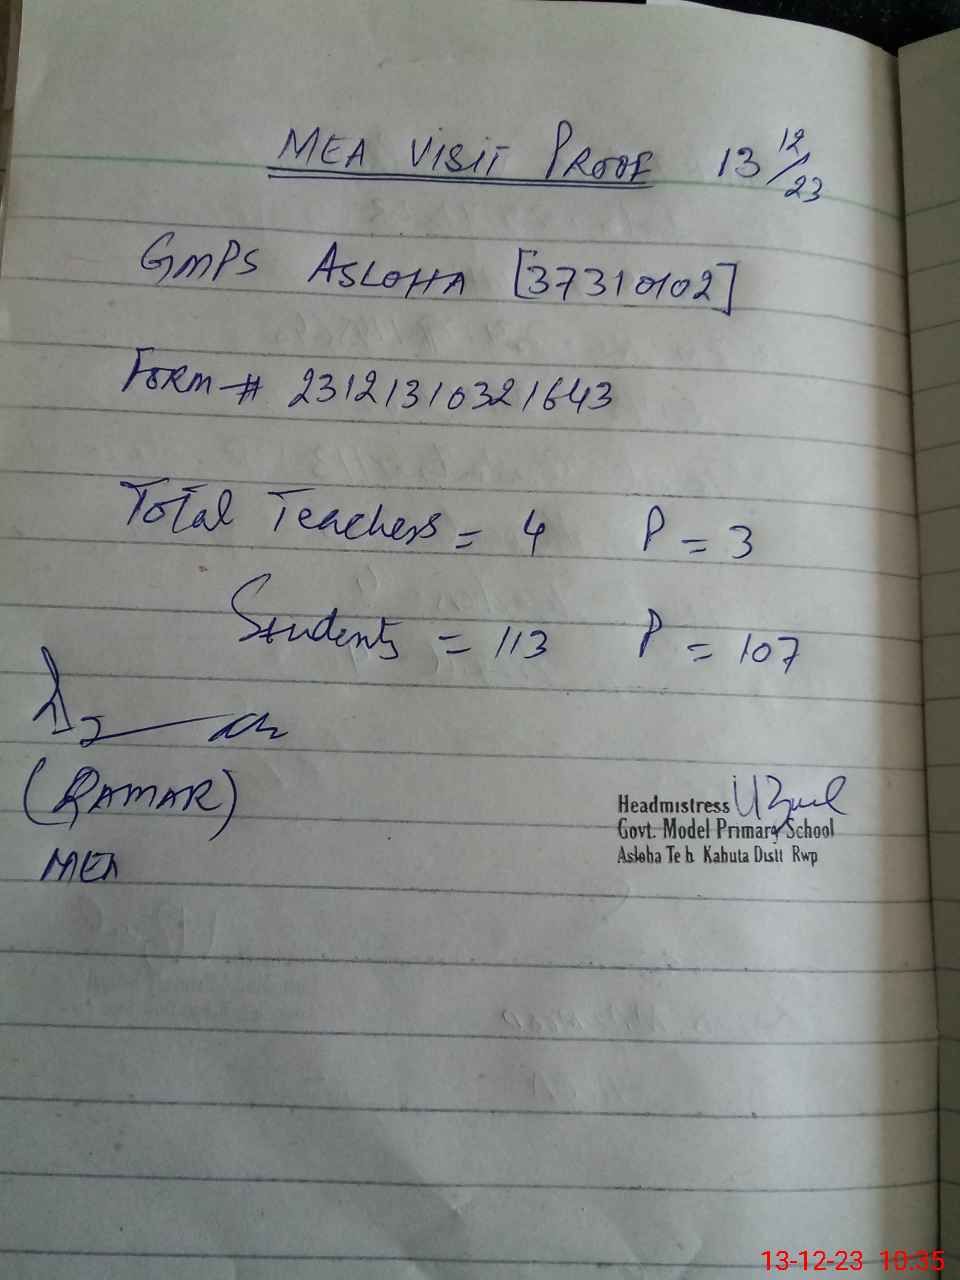 MEA VISIT PROOF 13/12/23
GMPS ASLOHA [37310102]
FORM # 23121310321643
Total Teachers = 4 P = 3
Students = 113 P = 107
(QAMAR)
MEA
Headmistress
Govt. Model Primary School
Asloha Teh Kahuta Distt Rwp
13-12-23 10:35